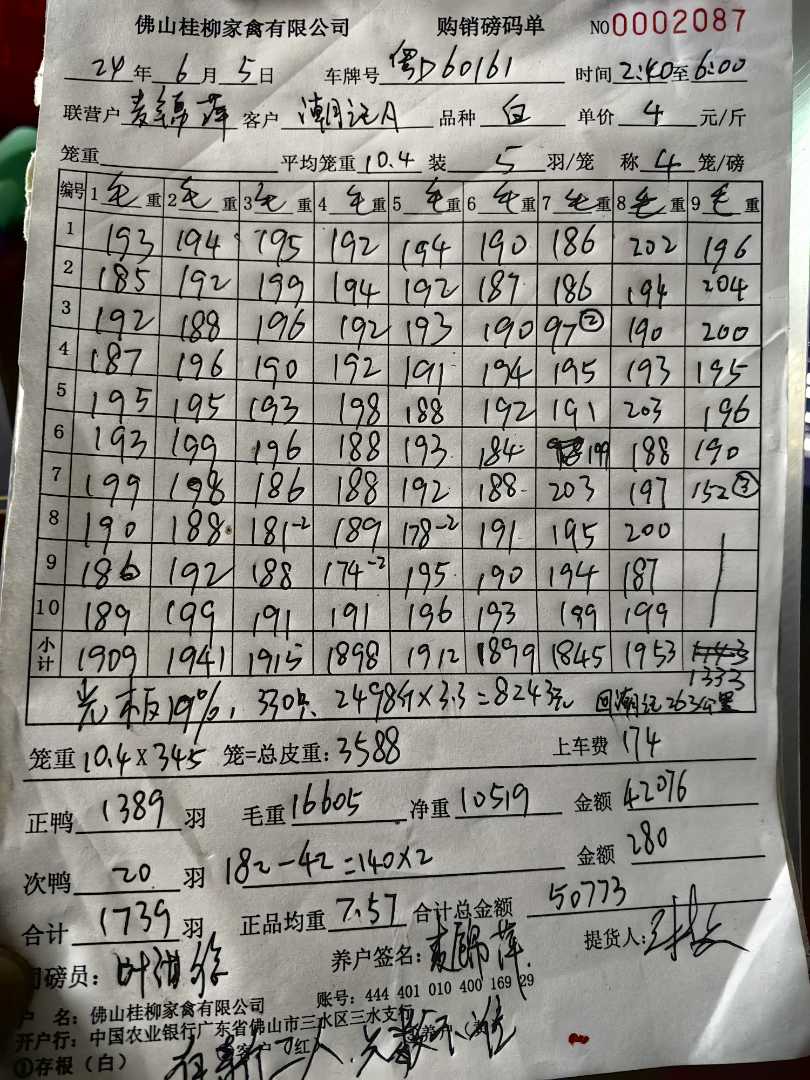 佛山桂柳家禽有限公司 购销磅码单 NO0002087
24年6月5日 车牌号 粤D60161 时间2:40至6:00
联营户 麦锦萍 客户 潮记A 品种 白 单价 4 元/斤
笼重 平均笼重10.4 装 5 羽/笼 称 4 笼/磅
编号 1毛重 2毛重 3毛重 4毛重 5毛重 6毛重 7毛重 8毛重 9毛重
1 193 194 195 192 194 190 186 202 196
2 185 192 199 194 192 187 186 194 204
3 192 188 196 192 193 190 97② 190 200
4 187 196 190 192 191 194 195 193 195
5 195 195 193 198 188 192 191 203 196
6 193 199 196 188 193 184 199 188 190
7 199 198 186 188 192 188 203 197 152③
8 190 188 181-2 189 178-2 191 195 200
9 186 192 188 174-2 195 190 194 187
10 189 199 191 191 196 193 199 199
小计 1909 1941 1915 1898 1912 1899 1845 1953 1333
光板19%, 330只 2498斤×3.3=8243元 回潮记263公里
笼重10.4×345 笼=总皮重:3588 上车费174
正鸭1389羽 毛重16605 净重10519 金额42076
次鸭20羽 182-42=140×2 金额280
合计1739羽 正品均重7.57 合计总金额50773
司磅员: 养户签名:麦锦萍 提货人:
户 名:佛山桂柳家禽有限公司 账号:444 401 010 400 169 29
开户行:中国农业银行广东省佛山市三水区三水支行
①存根(白)